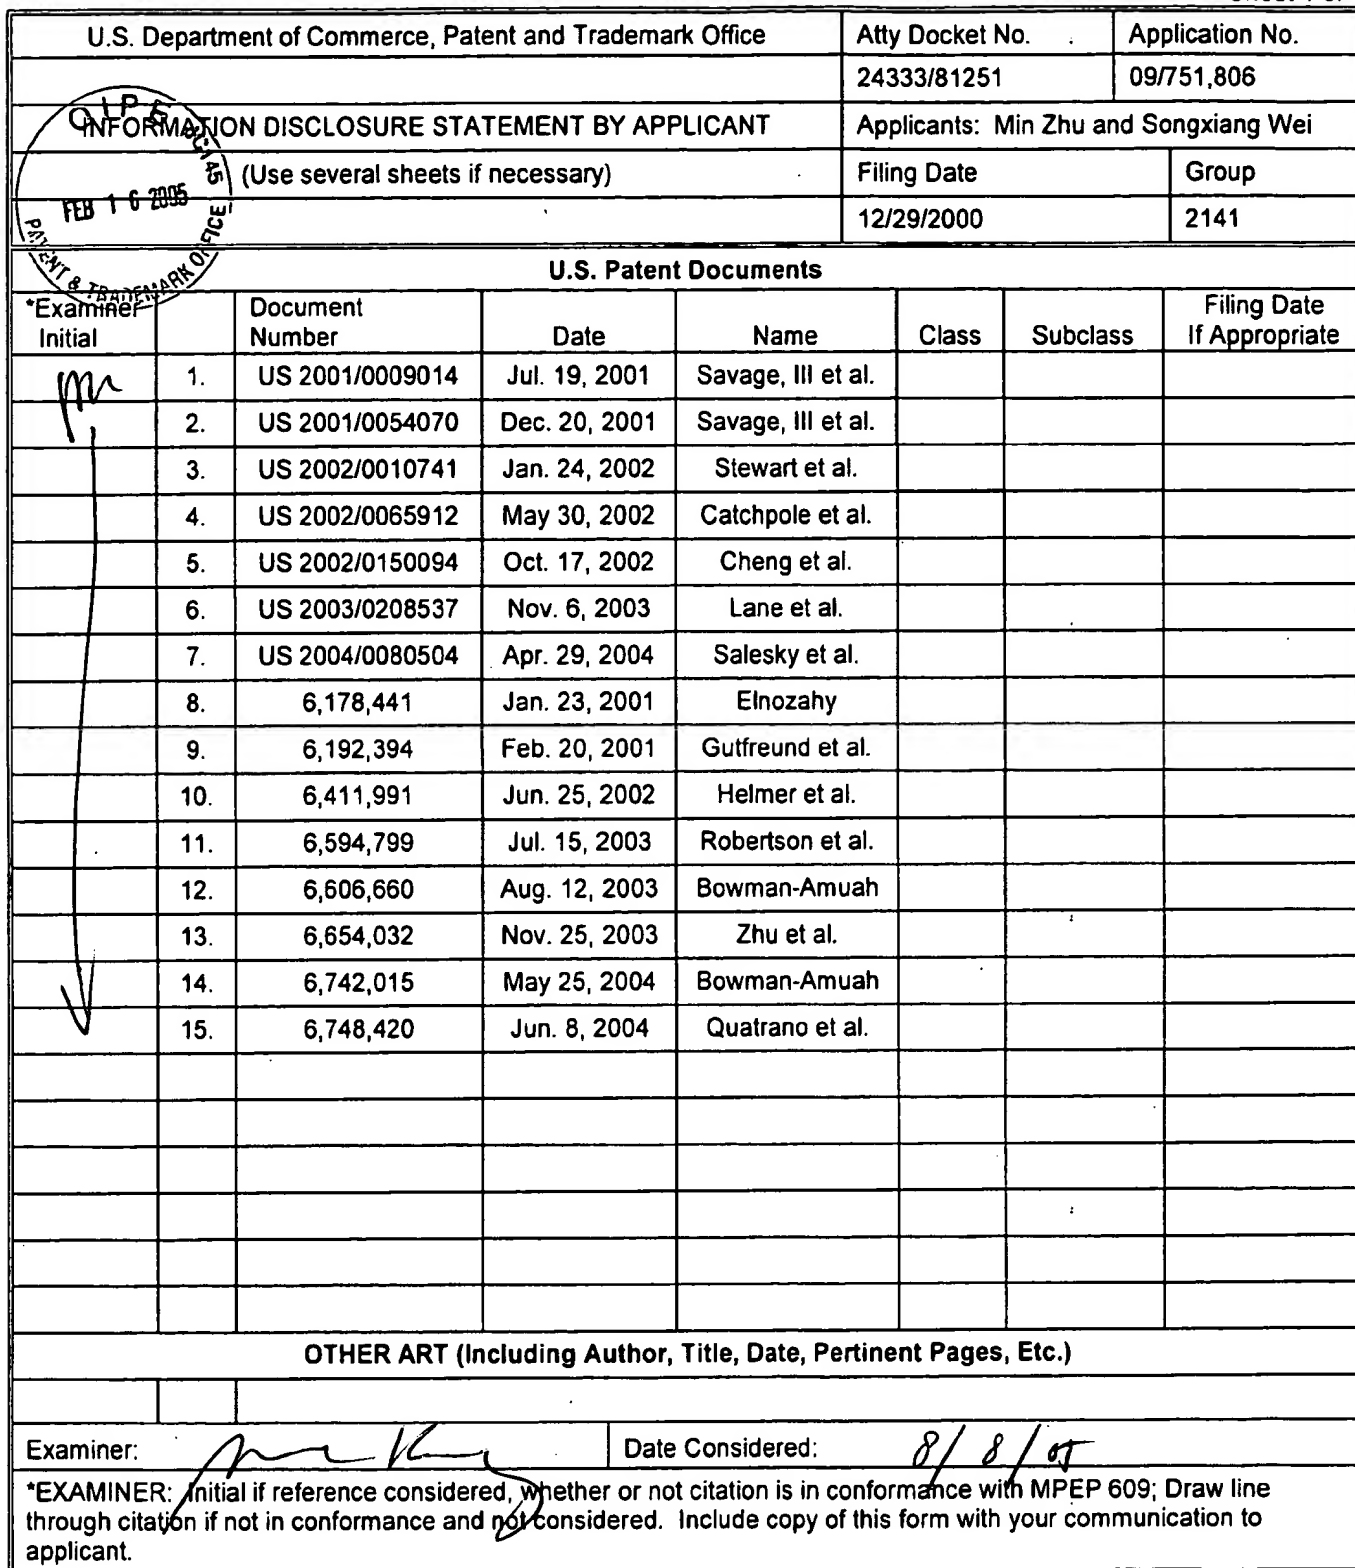 U.S. Department of Commerce, Patent and Trademark Office Atty Docket No. Application No.
24333/81251 09/751,806
INFORMATION DISCLOSURE STATEMENT BY APPLICANT Applicants: Min Zhu and Songxiang Wei
(Use several sheets if necessary) Filing Date Group
12/29/2000 2141
OIPE
FEB 16 2005
PATENT & TRADEMARK OFFICE
U.S. Patent Documents
*Examiner Initial Document Number Date Name Class Subclass Filing Date If Appropriate
1. US 2001/0009014 Jul. 19, 2001 Savage, III et al.
2. US 2001/0054070 Dec. 20, 2001 Savage, III et al.
3. US 2002/0010741 Jan. 24, 2002 Stewart et al.
4. US 2002/0065912 May 30, 2002 Catchpole et al.
5. US 2002/0150094 Oct. 17, 2002 Cheng et al.
6. US 2003/0208537 Nov. 6, 2003 Lane et al.
7. US 2004/0080504 Apr. 29, 2004 Salesky et al.
8. 6,178,441 Jan. 23, 2001 Elnozahy
9. 6,192,394 Feb. 20, 2001 Gutfreund et al.
10. 6,411,991 Jun. 25, 2002 Helmer et al.
11. 6,594,799 Jul. 15, 2003 Robertson et al.
12. 6,606,660 Aug. 12, 2003 Bowman-Amuah
13. 6,654,032 Nov. 25, 2003 Zhu et al.
14. 6,742,015 May 25, 2004 Bowman-Amuah
15. 6,748,420 Jun. 8, 2004 Quatrano et al.
OTHER ART (Including Author, Title, Date, Pertinent Pages, Etc.)
Examiner: Date Considered: 8/8/05
*EXAMINER: Initial if reference considered, whether or not citation is in conformance with MPEP 609; Draw line
through citation if not in conformance and not considered. Include copy of this form with your communication to
applicant.